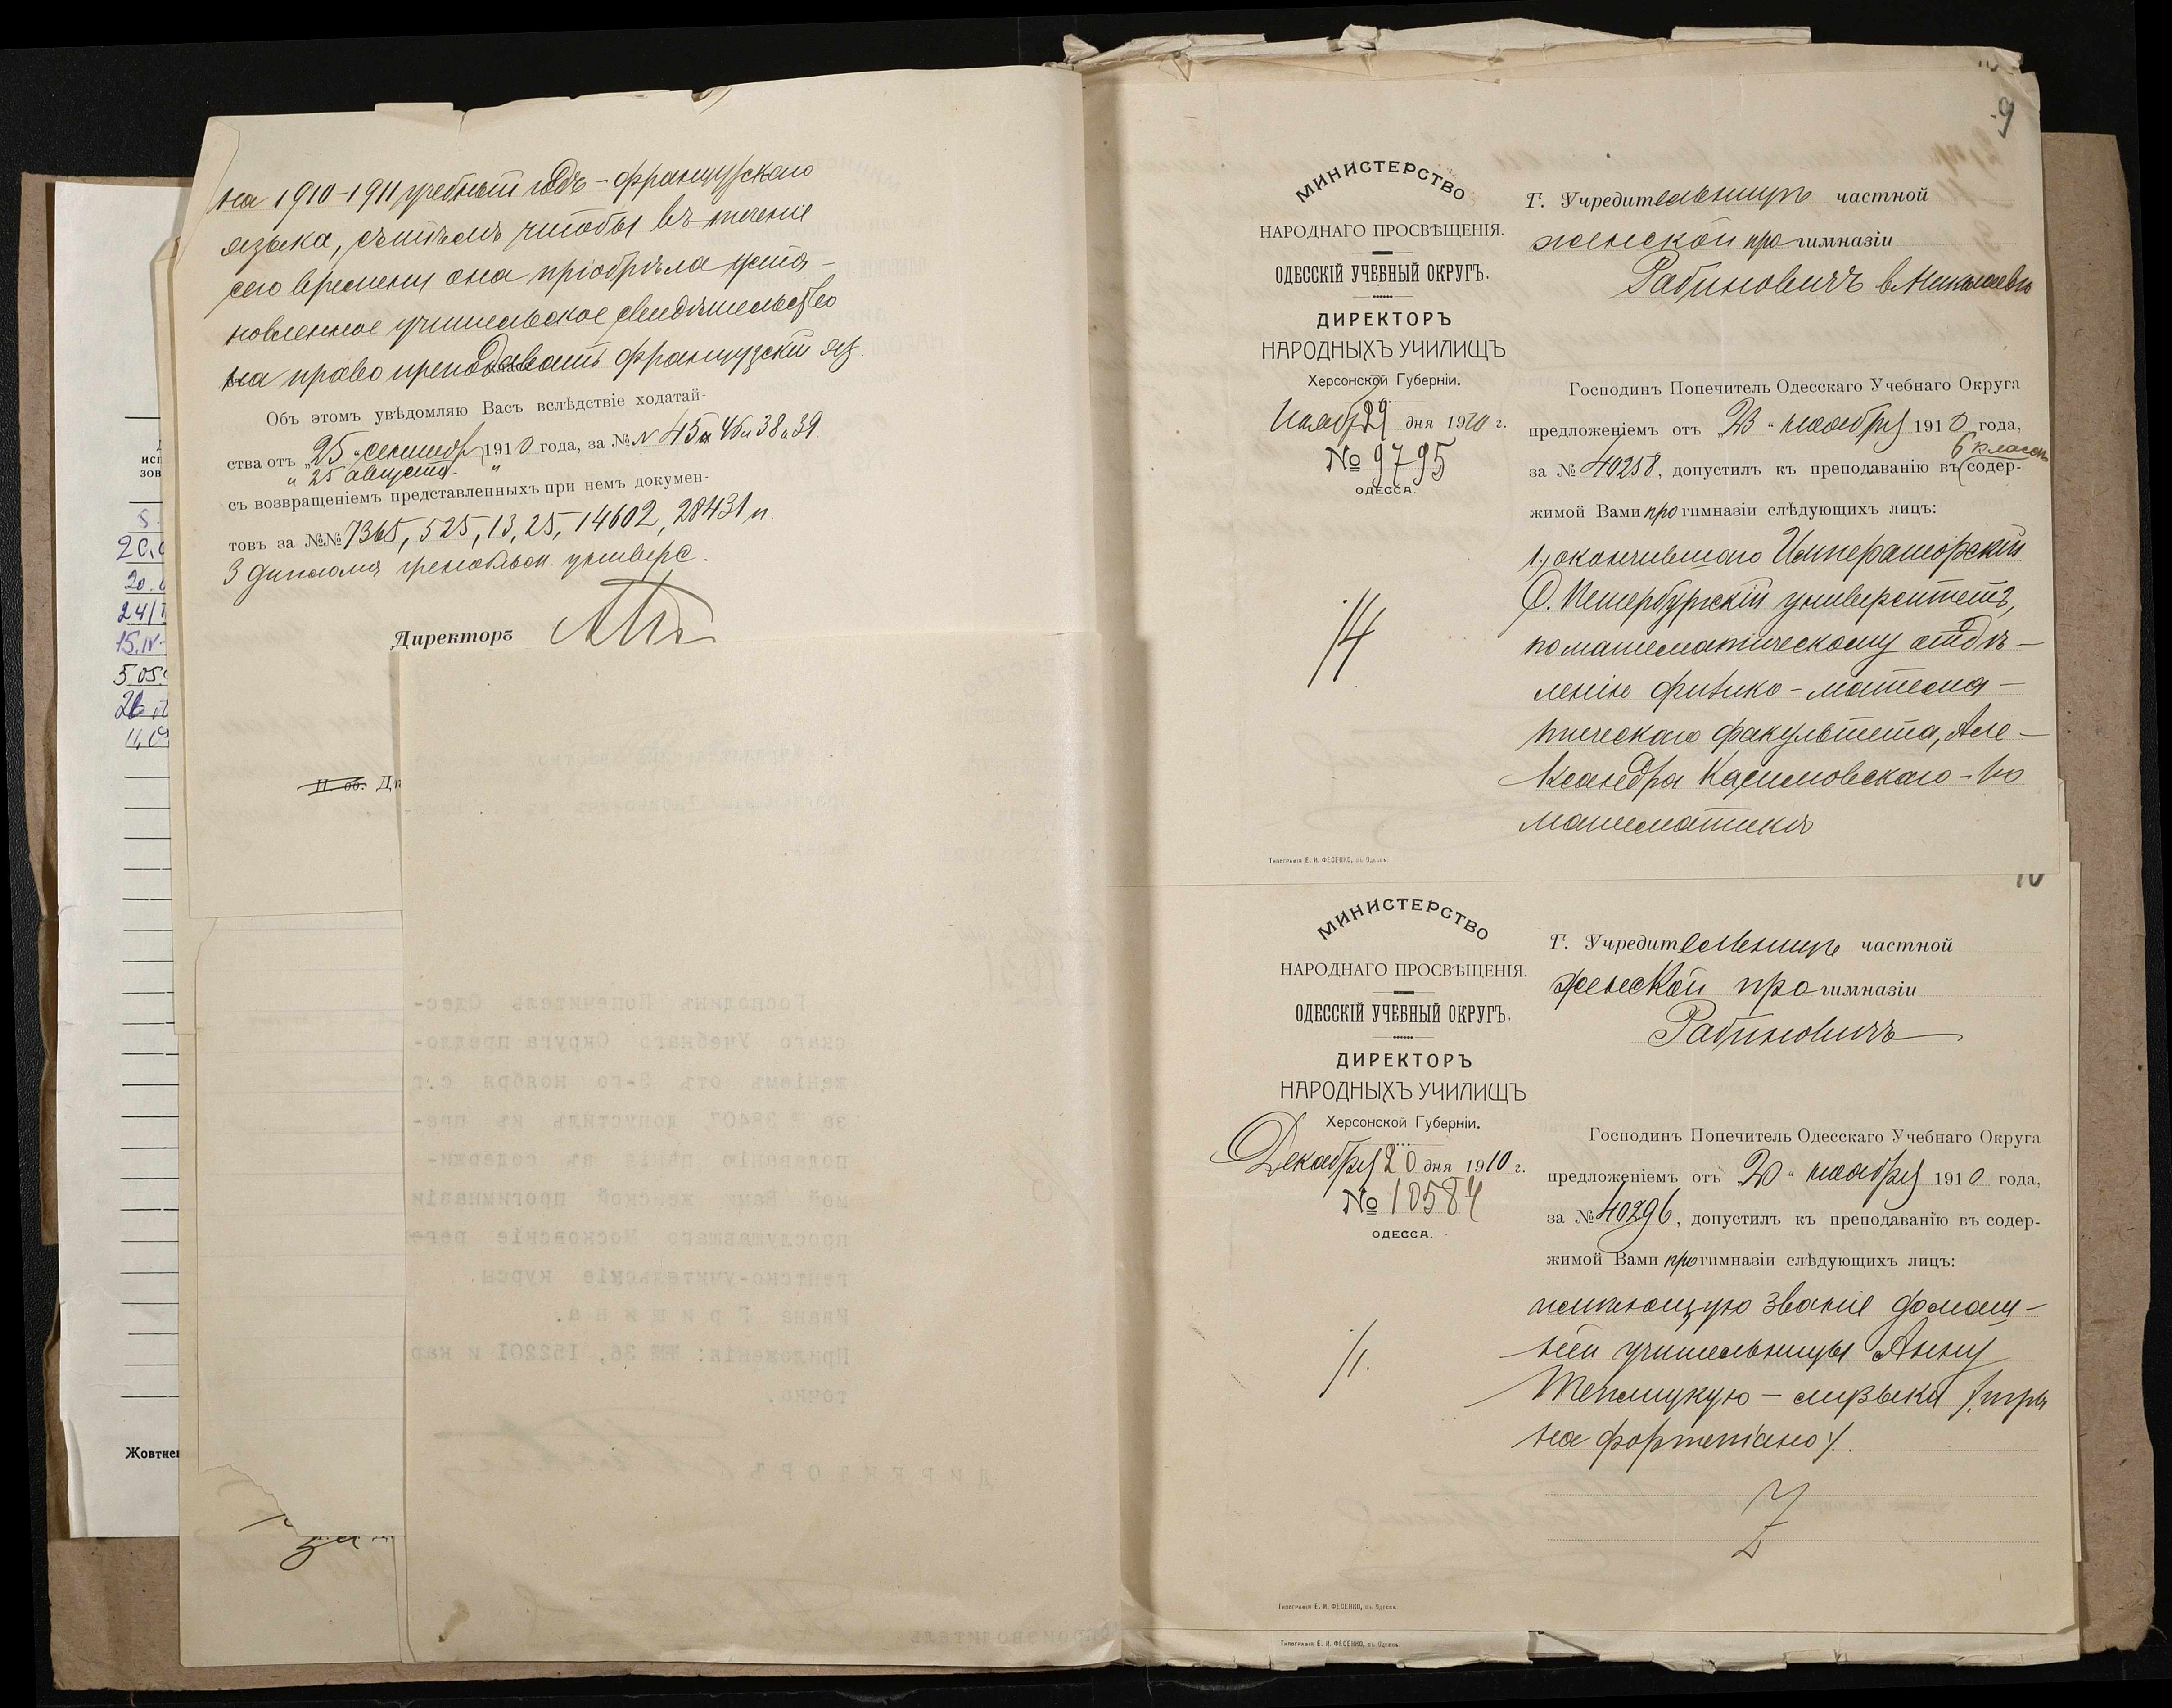 на 1910-1911 учебный годъ - французскаго
языка, съ тѣмъ чтобы въ теченіе
сего времени она пріобрѣла уста-
новленное учительское свидѣтельство
на право преподавать французскій яз.
Объ этомъ увѣдомляю Васъ вслѣдствіе ходатай-
ства отъ „25 " сентябр 1910 года, за №№ 45 и 46 и 38 и 39.
" 25 августа "
съ возвращеніемъ представленныхъ при немъ докумен-
товъ за №№ 7365, 525, 13, 25, 14602, 28431 и
3 диплома гренобльск. универс.
Директоръ
П. об. Ди
исп
зов
20.0
24/
15.IV-
5.05.
Жовтне
9
МИНИСТЕРСТВО
НАРОДНАГО ПРОСВѢЩЕНІЯ.
ОДЕССКІЙ УЧЕБНЫЙ ОКРУГЪ.
ДИРЕКТОРЪ
НАРОДНЫХЪ УЧИЛИЩЪ
Херсонской Губерніи.
Ноябр 29 дня 1910 г.
№ 9795
ОДЕССА.
14
Г. Учредительницѣ частной
женской прогимназіи
Рабиновичъ в Николаевѣ
Господинъ Попечитель Одесскаго Учебнаго Округа
предложеніемъ отъ „23 " ноября 1910 года,
за № 40258, допустилъ къ преподаванію въ 6 классѣ содер-
жимой Вами прогимназіи слѣдующихъ лицъ:
1, окончившаго Императорскій
С. Петербургскій университетъ,
по математическому отдѣ-
ленію физико-матема-
тическаго факультета, Але-
ксандра Касимовскаго - по
математикѣ
Типографія Е. И. ФЕСЕНКО, въ Одессѣ.
10
МИНИСТЕРСТВО
НАРОДНАГО ПРОСВѢЩЕНІЯ.
ОДЕССКІЙ УЧЕБНЫЙ ОКРУГЪ.
ДИРЕКТОРЪ
НАРОДНЫХЪ УЧИЛИЩЪ
Херсонской Губерніи.
Декабря 20 дня 1910 г.
№ 10584
ОДЕССА.
Г. Учредительницѣ частной
женской прогимназіи
Рабиновичъ
Господинъ Попечитель Одесскаго Учебнаго Округа
предложеніемъ отъ „20 " ноября 1910 года,
за № 40296, допустилъ къ преподаванію въ содер-
жимой Вами прогимназіи слѣдующихъ лицъ:
имѣющую званіе домаш-
ней учительницы Анну
Теплицкую - музыки /игры
на фортепіано/.
Типографія Е. И. ФЕСЕНКО, въ Одессѣ.
Типографія Е. И. ФЕСЕНКО, въ Одессѣ.
Господинъ Попечитель Одес-
скаго Учебнаго Округа предло-
женіемъ отъ 3-го ноября с.г.
за № 38407, допустилъ къ пре-
подаванію пѣнія въ содержи-
мой Вами женской прогимназіи
прослушавшаго Московскіе реге
нтско-учительскіе курсы
Ивана Гришина.
Приложенія: №№ 36, 152201 и кар
точко.
ДИРЕКТОРЪ